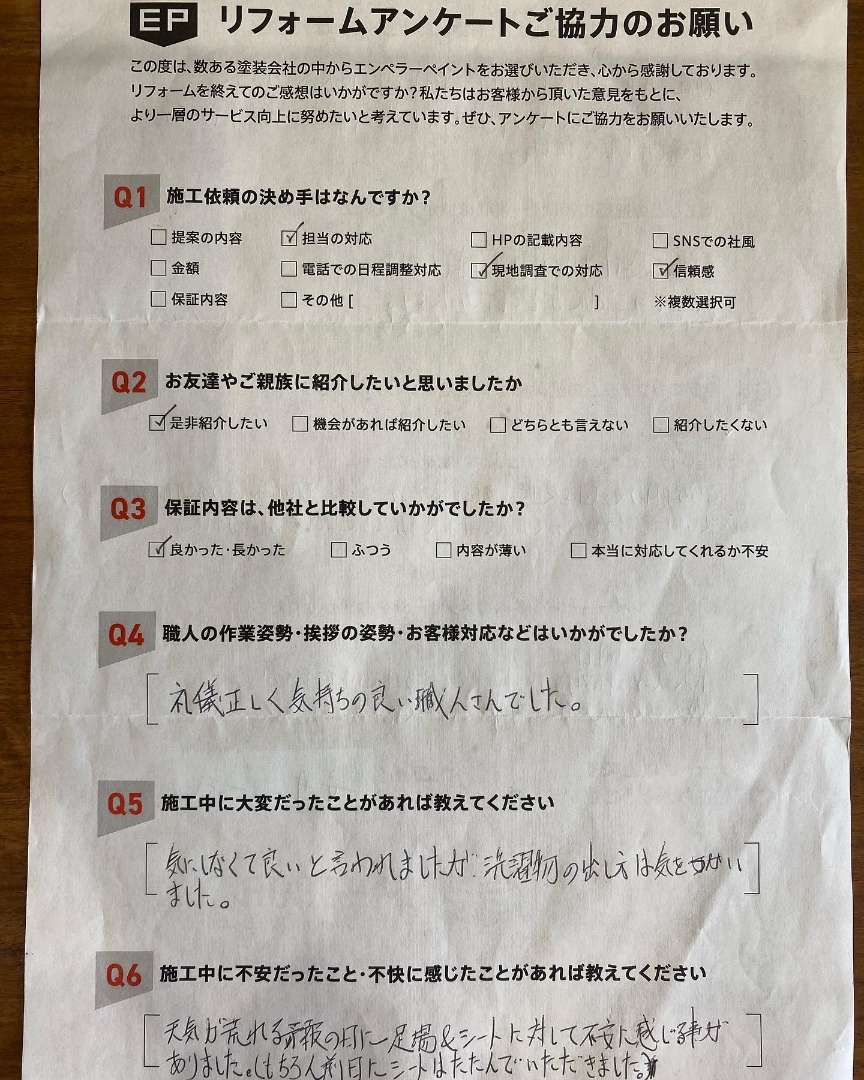 EP リフォームアンケートご協力のお願い
この度は、数ある塗装会社の中からエンペラーペイントをお選びいただき、心から感謝しております。
リフォームを終えてのご感想はいかがですか？私たちはお客様から頂いた意見をもとに、
より一層のサービス向上に努めたいと考えています。ぜひ、アンケートにご協力をお願いいたします。
Q1 施工依頼の決め手はなんですか？
□提案の内容 ☑担当の対応 □HPの記載内容 □SNSでの社風
□金額 □電話での日程調整対応 ☑現地調査での対応 ☑信頼感
□保証内容 □その他 [ ] ※複数選択可
Q2 お友達やご親族に紹介したいと思いましたか
☑是非紹介したい □機会があれば紹介したい □どちらとも言えない □紹介したくない
Q3 保証内容は、他社と比較していかがでしたか？
☑良かった・長かった □ふつう □内容が薄い □本当に対応してくれるか不安
Q4 職人の作業姿勢・挨拶の姿勢・お客様対応などはいかがでしたか？
礼儀正しく気持ちの良い職人さんでした。
Q5 施工中に大変だったことがあれば教えてください
気にしなくて良いと言われましたが、洗濯物の出し方は気をつかい
ました。
Q6 施工中に不安だったこと・不快に感じたことがあれば教えてください
天気が荒れる予報の日に足場&シートに対して不安に感じる事が
ありました。(もちろん前日にシートはたたんでいただきました。)